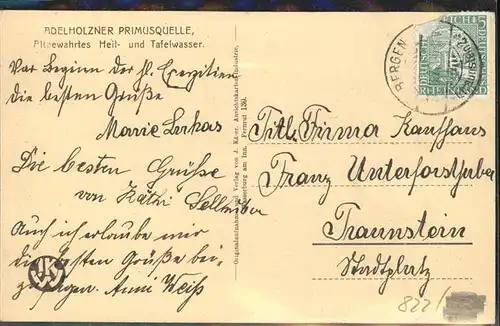 ADELHOLZNER PRIMUSQUELLE,
Altbewährtes Heil- und Tafelwasser.
Vor Beginn der hl. Exerzitien
die besten Grüße
Marie
Die besten Grüße
von Käthi
Auch ich erlaube mir
die besten Grüße bei-
zufügen. Anni Weiß
Originalaufnahme und Verlag von J. Käser, Ansichtskartenindustrie,
Wasserburg am Inn, Fernruf 130.
BERGEN
DEUTSCHES REICH
5
Titl. Firma Kaufhaus
Franz Unterforsthuber
Traunstein
Stadtplatz
822/